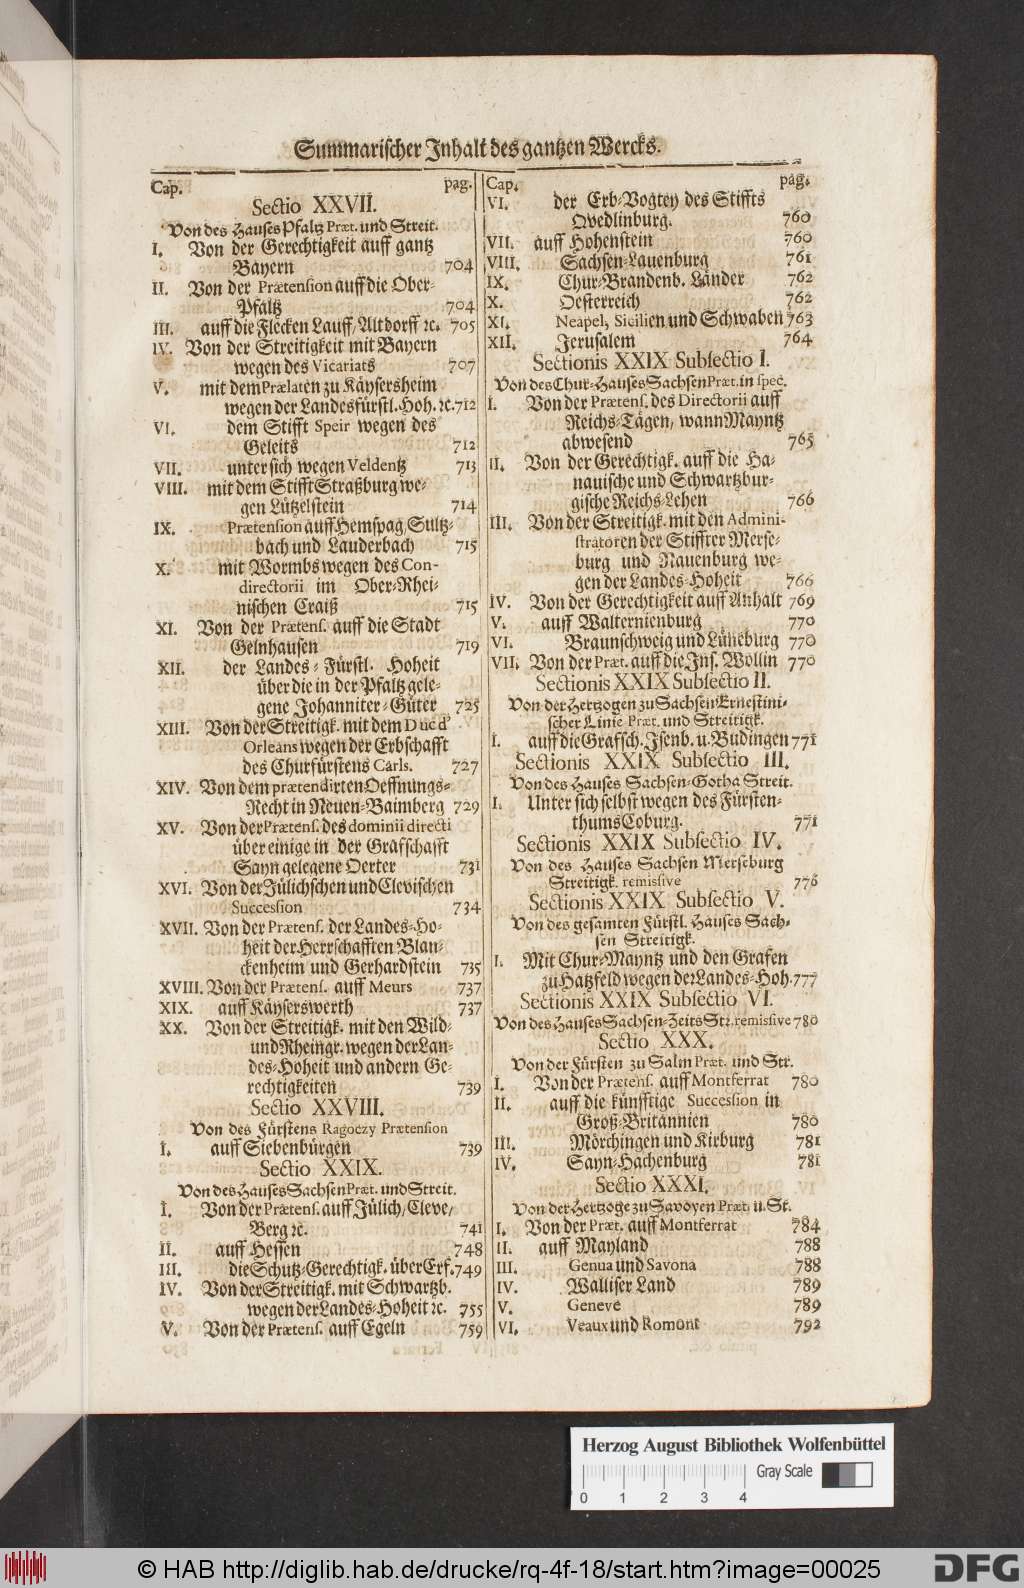 Summarischer Inhalt des gantzen Wercks.
Cap. pag.
Sectio XXVII.
Von des Hauses Pfaltz Præt. und Streit.
I. Von der Gerechtigkeit auff gantz
Bayern 704
II. Von der Prætension auff die Ober-
Pfaltz 704
III. auff die Flecken Lauff/Altdorff ꝛc. 705
IV. Von der Streitigkeit mit Bayern
wegen des Vicariats 707
V. mit dem Prælaten zu Käysersheim
wegen der Landesfürstl. Hoh. ꝛc. 712
VI. dem Stifft Speir wegen des
Geleits 712
VII. unter sich wegen Veldentz 713
VIII. mit dem Stifft Straßburg we-
gen Lützelstein 714
IX. Prætension auff Hemspag/Sultz-
bach und Lauderbach 715
X. mit Wormbs wegen des Con-
directorii im Ober-Rhei-
nischen Craiß 715
XI. Von der Prætens. auff die Stadt
Gelnhausen 719
XII. der Landes-Fürstl. Hoheit
über die in der Pfaltz gele-
gene Johanniter-Güter 725
XIII. Von der Streitigk. mit dem Duc d'
Orleans wegen der Erbschafft
des Churfürstens Carls. 727
XIV. Von dem prætendirten Oeffnungs-
Recht in Neuen-Baimberg 729
XV. Von der Prætens. des dominii directi
über einige in der Grafschafft
Sayn gelegene Oerter 731
XVI. Von der Jülichschen und Clevischen
Succession 734
XVII. Von der Prætens. der Landes-Ho-
heit der Herrschafften Blan-
ckenheim und Gerhardstein 735
XVIII. Von der Prætens. auff Meurs 737
XIX. auff Käyserswerth 737
XX. Von der Streitigk. mit den Wild-
und Rheingr. wegen der Lan-
des-Hoheit und andern Ge-
rechtigkeiten 739
Sectio XXVIII.
Von des Fürstens Ragoczy Prætension
I. auff Siebenbürgen 739
Sectio XXIX.
Von des Hauses Sachsen Præt. und Streit.
I. Von der Prætens. auff Jülich/Cleve/
Berg ꝛc. 741
II. auff Hessen 748
III. die Schutz-Gerechtigk. über Erf. 749
IV. Von der Streitigk. mit Schwartzb.
wegen der Landes-Hoheit ꝛc. 755
V. Von der Prætens. auff Egeln 759
Cap. pag.
VI. der Erb-Vogtey des Stiffts
Qvedlinburg. 760
VII. auff Hohenstein 760
VIII. Sachsen-Lauenburg 761
IX. Chur-Brandenb. Länder 762
X. Oesterreich 762
XI. Neapel, Sicilien und Schwaben 763
XII. Jerusalem 764
Sectionis XXIX Subsectio I.
Von des Chur-Hauses Sachsen Præt. in spec.
I. Von der Prætens. des Directorii auff
Reichs-Tägen, wann Mayntz
abwesend 765
II. Von der Gerechtigk. auff die Ha-
nauische und Schwartzbur-
gische Reichs-Lehen 766
III. Von der Streitigk. mit den Admini-
stratoren der Stiffter Merse-
burg und Nauenburg we-
gen der Landes-Hoheit 766
IV. Von der Gerechtigkeit auff Anhalt 769
V. auff Walternienburg 770
VI. Braunschweig und Lüneburg 770
VII. Von der Præt. auff die Ins. Wollin 770
Sectionis XXIX Subsectio II.
Von der Hertzogen zu Sachsen Ernestini-
scher Linie Præt. und Streitigk.
I. auff die Grafsch. Isenb. u. Budingen 771
Sectionis XXIX Subsectio III.
Von des Hauses Sachsen-Gotha Streit.
I. Unter sich selbst wegen des Fürsten-
thums Coburg. 771
Sectionis XXIX Subsectio IV.
Von des Hauses Sachsen Merseburg
Streitigk. remissive 776
Sectionis XXIX Subsectio V.
Von des gesamten Fürstl. Hauses Sach-
sen Streitigk.
I. Mit Chur-Mayntz und den Grafen
zu Hatzfeld wegen der Landes-Hoh. 777
Sectionis XXIX Subsectio VI.
Von des Hauses Sachsen-Zeits Str. remissive 780
Sectio XXX.
Von der Fürsten zu Salm Præt. und Str.
I. Von der Prætens. auff Montferrat 780
II. auff die künfftige Succession in
Groß-Britannien 780
III. Mörchingen und Kirburg 781
IV. Sayn-Hachenburg 781
Sectio XXXI.
Von der Hertzoge zu Savoyen Præt. u. St.
I. Von der Præt. auff Montferrat 784
II. auff Mayland 788
III. Genua und Savona 788
IV. Walliser Land 789
V. Geneve 789
VI. Veaux und Romont 792
Herzog August Bibliothek Wolfenbüttel
Gray Scale
0 1 2 3 4
© HAB http://diglib.hab.de/drucke/rq-4f-18/start.htm?image=00025
DFG